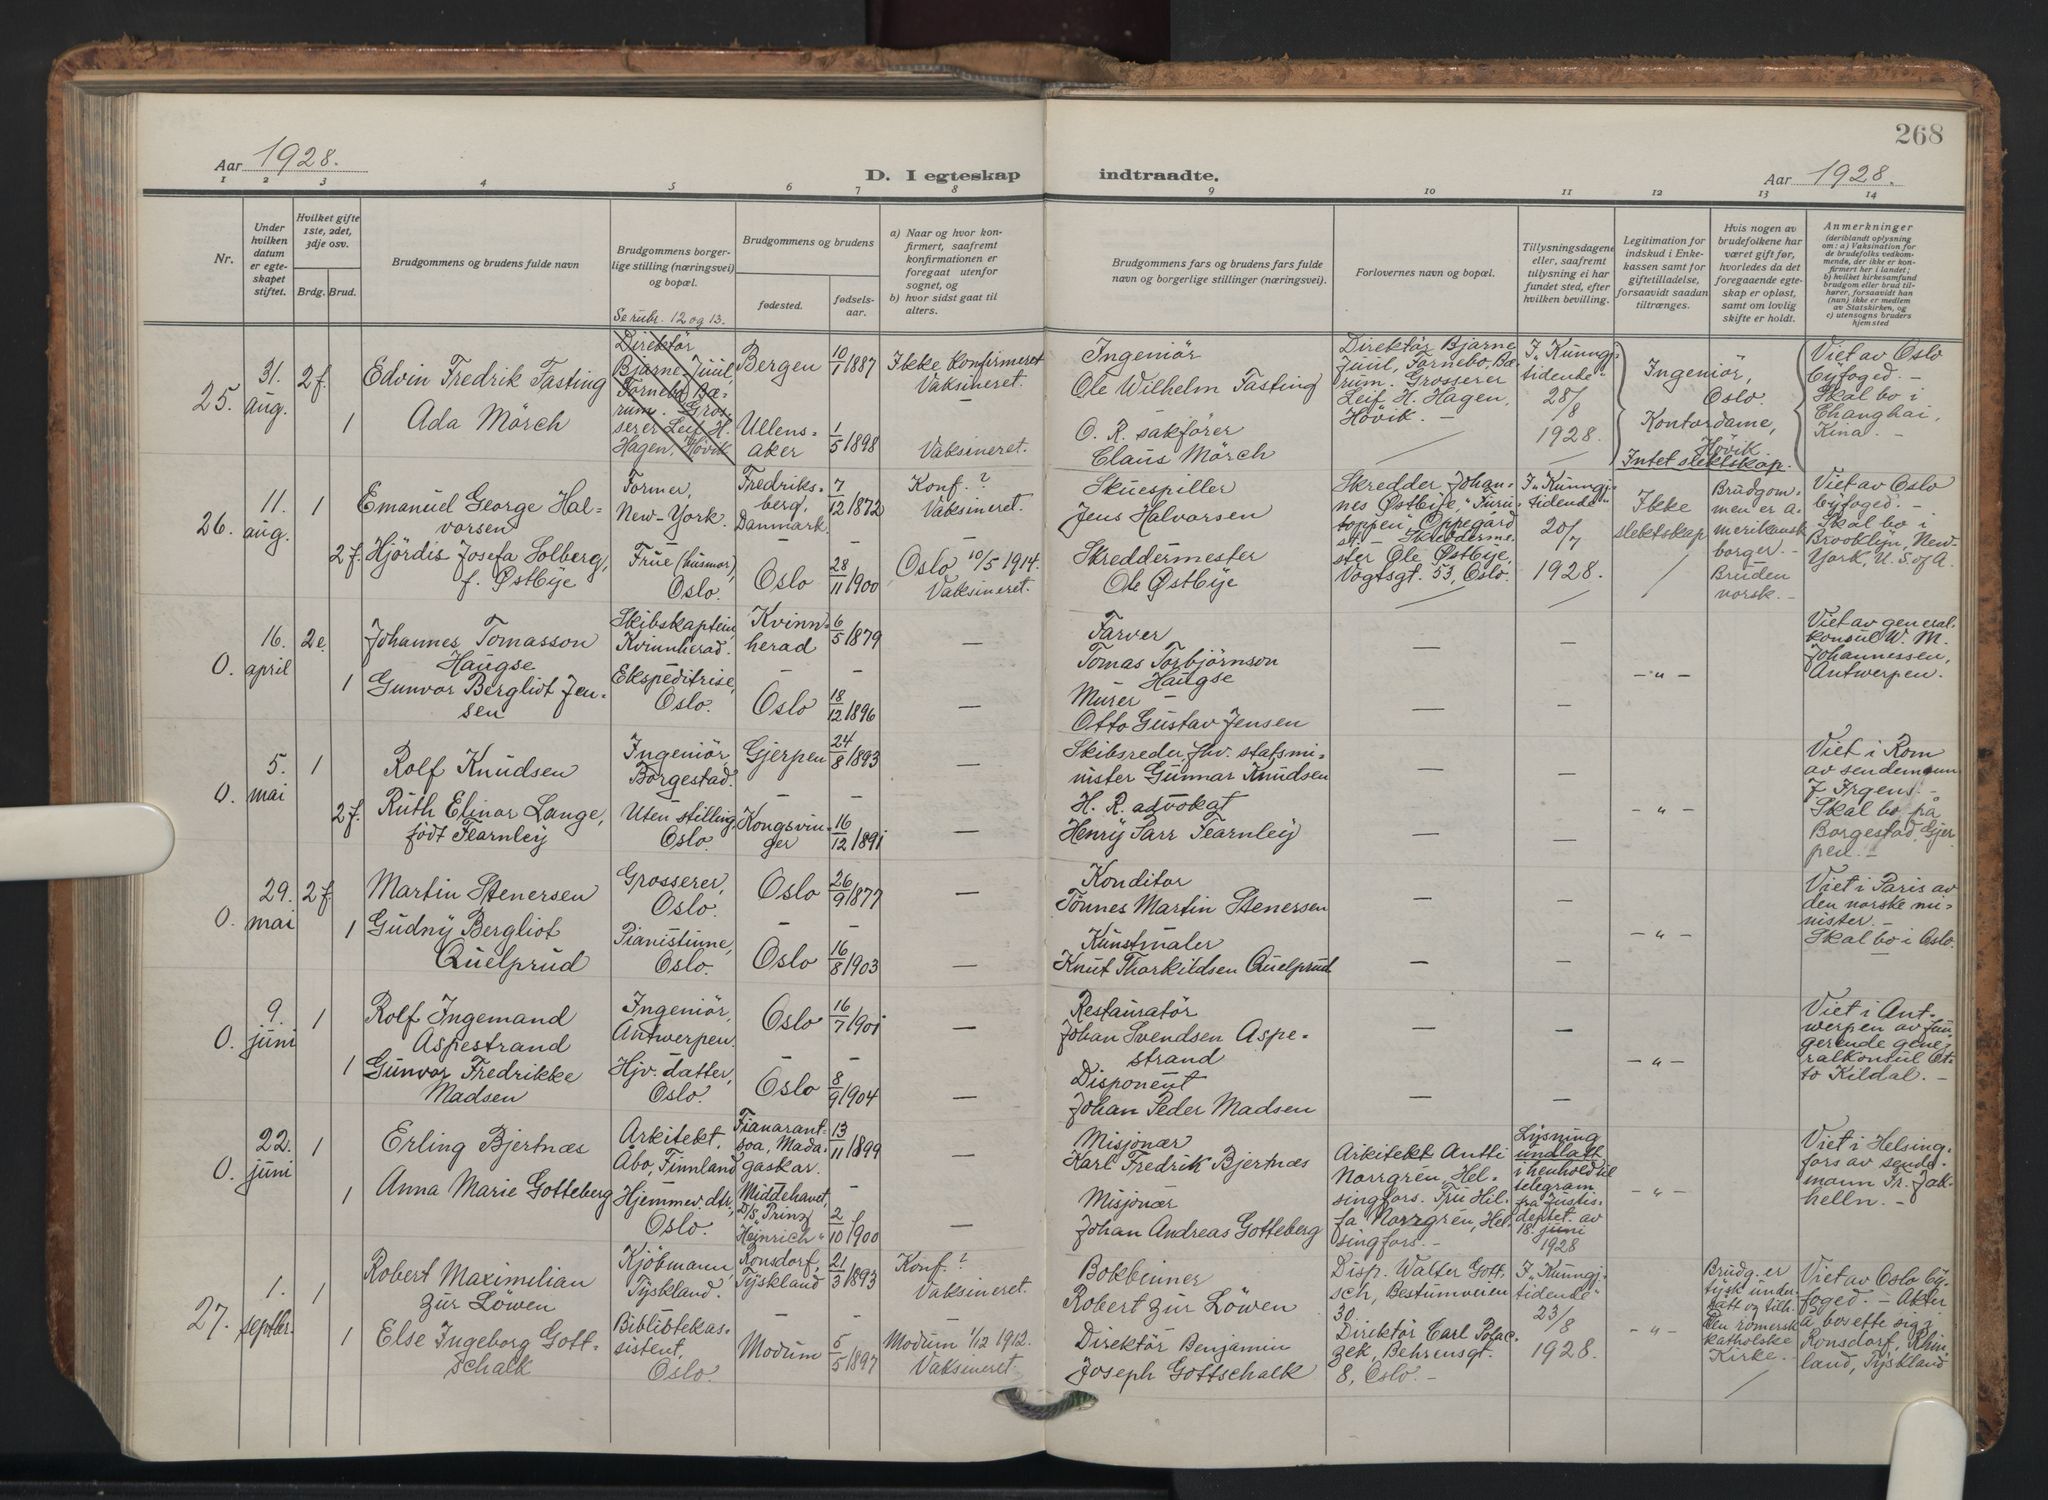 268
Aar 1928.
D. I egteskap indtraadte.
Aar 1928.
1 2 3 4 5 6 7 8 9 10 11 12 13 14
Nr.
Under hvilken datum er egteskapet stiftet.
Hvilket gifte 1ste, 2det, 3dje osv.
Brdg. Brud.
Brudgommens og brudens fulde navn
Brudgommens borgerlige stilling (næringsvei) og bopæl.
Se rubr. 12 og 13.
Brudgommens og brudens
fødested.
fødselsaar.
a) Naar og hvor konfirmert, saafremt konfirmationen er foregaat utenfor sognet, og
b) hvor sidst gaat til alters.
Brudgommens fars og brudens fars fulde navn og borgerlige stillinger (næringsvei).
Forlovernes navn og bopæl.
Tillysningsdagene eller, saafremt tillysning ei har fundet sted, efter hvilken bevilling.
Legitimation for indskud i Enkekassen samt for giftetilladelse, forsaavidt saadan tiltrænges.
Hvis nogen av brudefolkene har været gift før, hvorledes da det foregaaende egteskap er opløst, samt om lovlig skifte er holdt.
Anmerkninger
(deriblandt oplysning om: a) Vaksination for de brudefolks vedkommende, der ikke er konfirmert her i landet; b) hvilket kirkesamfund brudgom eller brud tilhører, forsaavidt han (hun) ikke er medlem av Statskirken, og c) utensogns bruders hjemsted
25.
31. aug.
2 f.
Edvin Fredrik Fasting
Direktör Bjarne Juul, Fornebo, Bærum. Grosserer Leif H. Hagen, Hövik
Bergen
10/1 1887
Ikke konfirmeret
Vaksineret.
Ingeniör
Ole Wilhelm Fasting
Direktör Bjarne Juul, Fornebo, Bærum. Grosserer Leif H. Hagen, Hövik.
I "Kunngj. tidende" 28/8 1928.
Ingeniör, Oslo.
Kontordame, Hövik
Intet slektskap.
Viet av Oslo byfoged. –
Skal bo i Changhai, Kina. –
1
Ada Mörch
Ullensaker
1/5 1898
Vaksineret.
O. R. sakförer
Claus Mörch
26.
11. aug.
1
Emanuel George Halvorsen
Former, New-York.
Fredriksberg, Danmark.
7/12 1872
Konf. ?
Vaksineret.
Skuespiller
Jens Halvorsen
Skredder Johannes Østbye, "Furutoppen", Oppegård st. – Skreddermester Ole Østbye, Vogtsgt. 53, Oslo.
I "Kunngj. tidende" 20/7 1928.
Ikke slektskap
Brudgommen er amerikansk borger. –
Bruden norsk. –
Viet av Oslo byfoged. –
Skal bo i Brooklyn, New-York, U. S. of A.
2 f.
Hjördis Josefa Solberg, f. Østbye
Frue (husmor), Oslo.
Oslo
28/11 1900
Oslo 10/5 1914.
Vaksineret.
Skreddermester
Ole Østbye
0.
16. april
2 e.
Johannes Tomasson Haugse
Skibskaptein, Kvinnherad.
Kvinnherad
6/5 1879
Farver
Tomas Torbjörnson Haugse
– " –
Viet av generalkonsul W. M. Johannessen, Antwerpen.
1
Gunvor Bergliot Jensen
Ekspeditrise, Oslo.
Oslo
18/12 1896
Murer
Otto Gustav Jensen
0.
5. mai
1
Rolf Knudsen
Ingeniör Borgestad.
Gjerpen
24/8 1893
Skibsreder, fhv. statsminister Gunnar Knudsen
– " –
Viet i Rom av sendemann J. Irgens. –
Skal bo på Borgestad, Gjerpen. –
2 f.
Ruth Elinor Lange, født Fearnley
Uten stilling, Oslo.
Kongsvinger
16/12 1891
H. R. advokat
Henry Farr Fearnley
0.
29. mai
2 f.
Martin Stenersen
Grosserer, Oslo.
Oslo
26/9 1877
Konditor
Tönnes Martin Stenersen
– " –
Viet i Paris av den norske minister. –
Skal bo i Oslo.
1
Gudny Bergliot Quelprud
Pianistinne, Oslo.
Oslo
16/8 1903
Kunstmaler
Knut Thorkildsen Quelprud
0.
9. juni
1
Rolf Ingemand Aspestrand
Ingeniör, Antwerpen.
Oslo
16/7 1901
Restauratör
Johan Svendsen Aspestrand
– " –
Viet i Antwerpen av fungerende generalkonsul Otto Kildal. –
1
Gunvor Fredrikke Madsen
Hjv. datter, Oslo.
Oslo
8/9 1904
Disponent
Johan Peder Madsen
0.
22. juni
1
Erling Bjertnæs
Arkitekt, Åbo, Finnland
Fianarantsoa, Madagaskar.
13/11 1899
Misjonær
Karl Fredrik Bjertnæs
Arkitekt Antti Norrgrén, Helsingfors. Fru Hilfa Norrgrén, Helsingfors. –
Lysning undlatt i henhold til telegram fra Justisdeptet. av 18. juni 1928
– " –
Viet i Helsingfors av sendemann Fr. Jakhelln. –
1
Anna Marie Gotteberg
Hjemmev. dtr., Oslo.
Middehavet, D/S "Prinz Heinrich"
2/10 1900
Misjonær
Johan Andreas Gotteberg
27.
1. septbr.
1
Robert Maximilian zur Löwen
Kjöbmann, Tyskland.
Ronsdorf, Tyskland
21/3 1893
Konf. ?
Vaksineret.
Bokbinner
Robert zur Löwen
Disp. Walter Gottsch, Bestumveien 30.
Direktör Carl Polaczek, Behrensgt. 8, Oslo. –
I "Kunngj. tidende" 23/8 1928.
– " –
Brudg. er tysk undersått og tilh. den romersk katholske Kirke. –
Viet av Oslo byfoged. – Akter å bosette sig i Ronsdorf, Rhinland, Tyskland
1
Else Ingeborg Gottschalk
Bibliotekassistent, Oslo.
Modum
5/5 1897
Modum 1/12 1912.
Vaksineret.
Direktör Benjamin Joseph Gottschalk